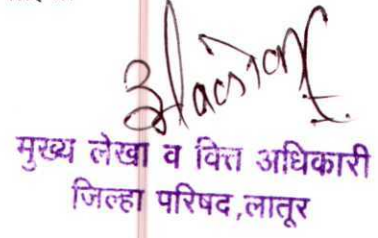 मुख्य लेखा व वित्त अधिकारी
जिल्हा परिषद,लातूर